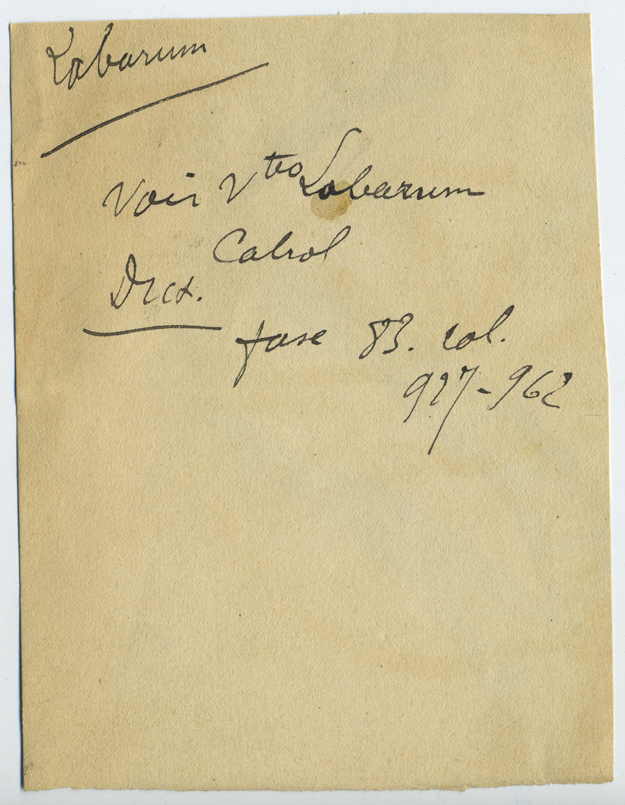 Labarum
Voir Vto Labarum
Cabrol
Dict.
fasc 83. col.
927-962